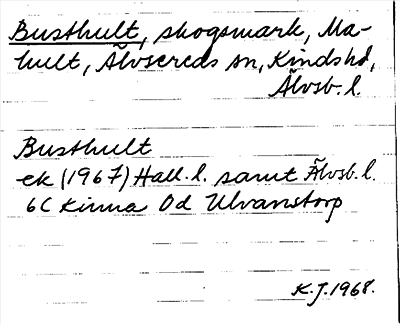 Busthult, skogsmark, Ma-
hult, Älvsereds sn, Kinds hd,
Älvsb. l.
Busthult
ek (1967) Hall. l. samt Älvsb. l.
6C Kinna 0d Ulvanstorp
K.J. 1968.